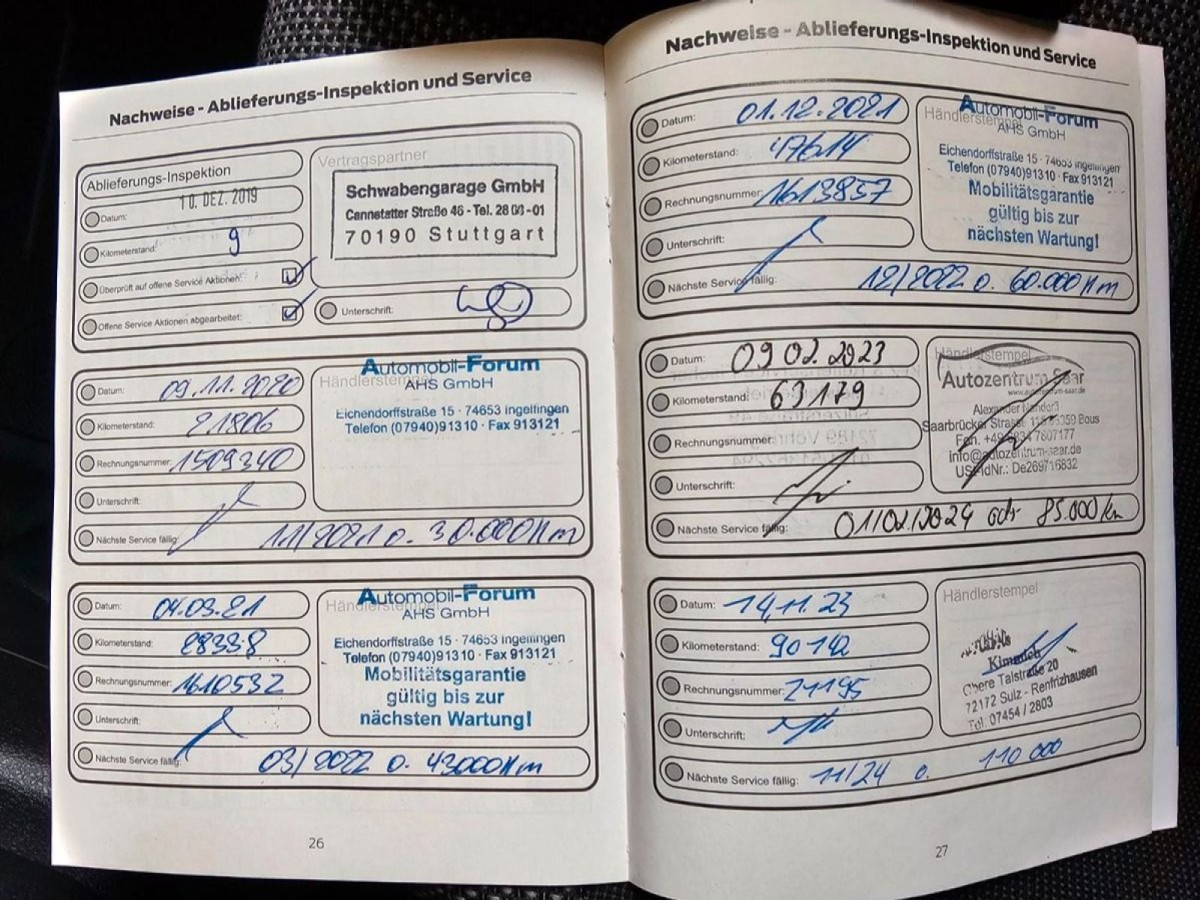 Nachweise - Ablieferungs-Inspektion und Service
Ablieferungs-Inspektion
Datum: 10. DEZ. 2019
Kilometerstand: 9
Überprüft auf offene Service Aktionen:
Offene Service Aktionen abgearbeitet:
Vertragspartner
Schwabengarage GmbH
Cannstatter Straße 46 - Tel. 28 03-01
70190 Stuttgart
Unterschrift:
Datum: 09.11.2020
Kilometerstand: 21806
Rechnungsnummer: 1509340
Unterschrift:
Nächste Service fällig: 11/2021 o. 30.000km
Händlerstempel
Automobil-Forum
AHS GmbH
Eichendorffstraße 15 · 74653 Ingelfingen
Telefon (07940)91310 · Fax 913121
Datum: 04.03.21
Kilometerstand: 28338
Rechnungsnummer: 1610532
Unterschrift:
Nächste Service fällig: 03/2022 o. 43000km
Händlerstempel
Automobil-Forum
AHS GmbH
Eichendorffstraße 15 · 74653 Ingelfingen
Telefon (07940)91310 · Fax 913121
Mobilitätsgarantie
gültig bis zur
nächsten Wartung!
26
Nachweise - Ablieferungs-Inspektion und Service
Datum: 01.12.2021
Kilometerstand: 47614
Rechnungsnummer: 1613857
Unterschrift:
Nächste Service fällig: 12/2022 o. 60.000km
Händlerstempel
Automobil-Forum
AHS GmbH
Eichendorffstraße 15 · 74653 Ingelfingen
Telefon (07940)91310 · Fax 913121
Mobilitätsgarantie
gültig bis zur
nächsten Wartung!
Datum: 09.02.2023
Kilometerstand: 63179
Rechnungsnummer:
Unterschrift:
Nächste Service fällig: 01/02/2024 odr 85.000 km
Händlerstempel
Autozentrum Saar
www.autozentrum-saar.de
Alexander
Saarbrücker Strasse 115 66359 Bous
Fon. +49 6834 7807177
info@autozentrum-saar.de
USt-IdNr.: De269716832
Datum: 14.11.23
Kilometerstand: 90142
Rechnungsnummer: 21195
Unterschrift:
Nächste Service fällig: 11/24 o. 110 000
Händlerstempel
Obere Talstraße 20
72172 Sulz - Renfrizhausen
Tel. 07454 / 2803
27